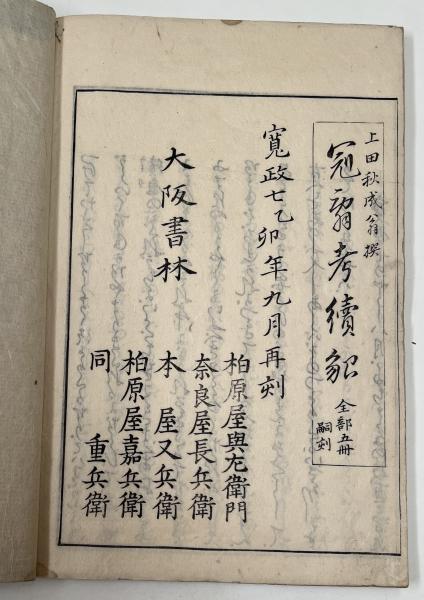 上田秋成翁撰
冠辭考續貂
全部五冊
嗣刻
寛政七乙卯年九月再刻
大阪書林
柏原屋與左衛門
奈良屋長兵衛
本屋又兵衛
柏原屋嘉兵衛
同 重兵衛